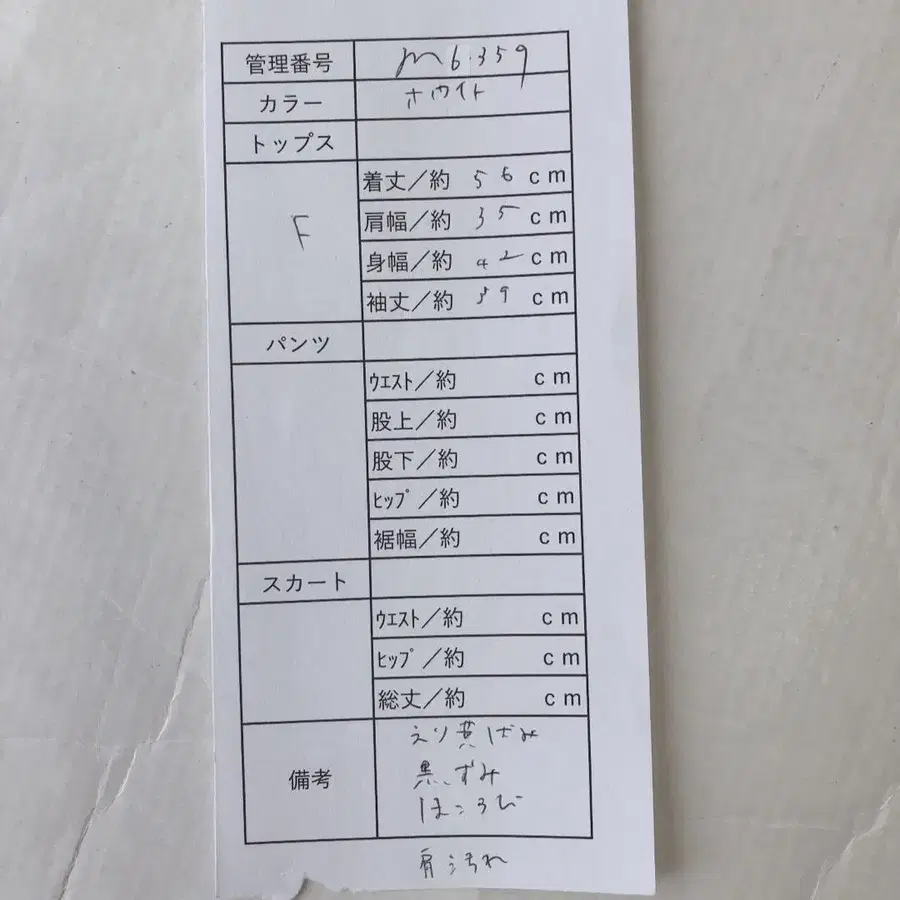 管理番号 m6.359
カラー ホワイト
トップス
F
着丈／約 56 cm
肩幅／約 35 cm
身幅／約 42 cm
袖丈／約 59 cm
パンツ
ｳｴｽﾄ／約 cm
股上／約 cm
股下／約 cm
ﾋｯﾌﾟ／約 cm
裾幅／約 cm
スカート
ｳｴｽﾄ／約 cm
ﾋｯﾌﾟ／約 cm
総丈／約 cm
備考
えり黄ばみ
黒ずみ
ほころび
肩汚れ